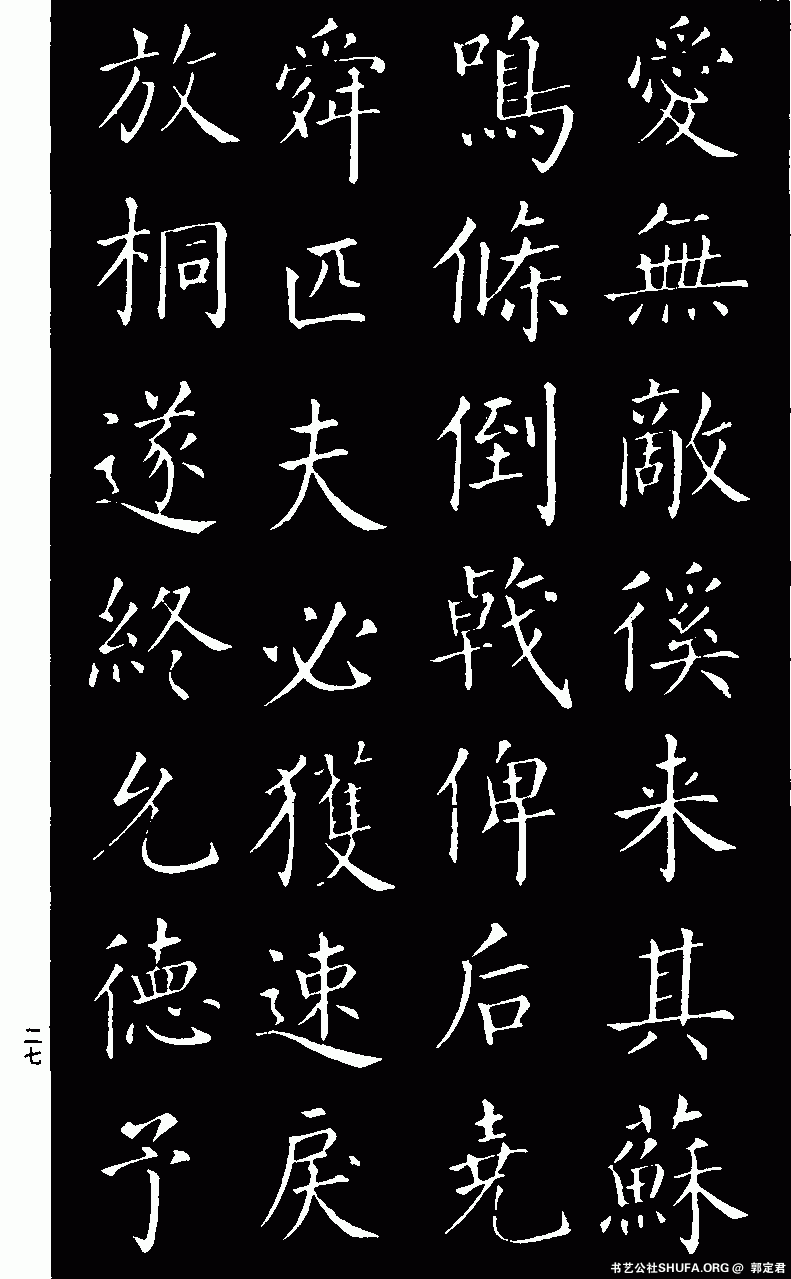 愛無敵徯来其蘇
鳴條倒戟俾后堯
舜匹夫必獲速戾
放桐遂終允德予
二七
书艺公社SHUFA.ORG @ 郭定君